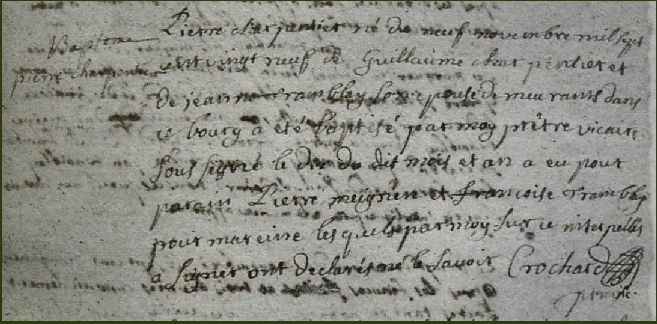 Bapteme
pierre charpentier
Pierre charpantier né du neuf novembre mil sept
cent vingt neuf de Guillaume chat pentier et
de jeanne Trambley son epouse demeurants dans
ce bourg a été baptété par moy prêtre vicaire
sous signé le dix du dit mois et an a eu pour
parain Pierre meignien et francoise Trambley
pour mareine lesquels par moy sur ce interpellés
a signer ont declarés ne le savoir Crochard
prêtre